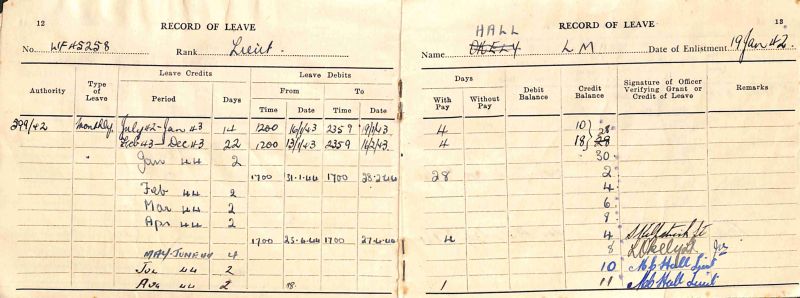 12
RECORD OF LEAVE
No. WF45258 Rank Lieut.
Authority
Type of Leave
Leave Credits
Leave Debits
Period
Days
From
To
Time Date Time Date
399/42 Monthly July 42-Jan 43 14 1200 16/1/43 2359 19/1/43
Feb 43-Dec 43 22 1200 13/1/43 2359 16/2/43
Jan 44 2
1700 31.1.44 1700 28.2.44
Feb 44 2
Mar 44 2
Apr 44 2
1700 23.6.44 1700 27.6.44
MAY-JUNE 44 4
Jul 44 2
Aug 44 2 18
13
RECORD OF LEAVE
HALL
Name OKELY L M Date of Enlistment 19 Jan 42.
Days
With Pay
Without Pay
Debit Balance
Credit Balance
Signature of Officer Verifying Grant or Credit of Leave
Remarks
4 10 28
4 18 28
30
28 2
4
6
8
4 4
8 L Okely Lt
10 Hall Lieut
1 11 Hall Lieut